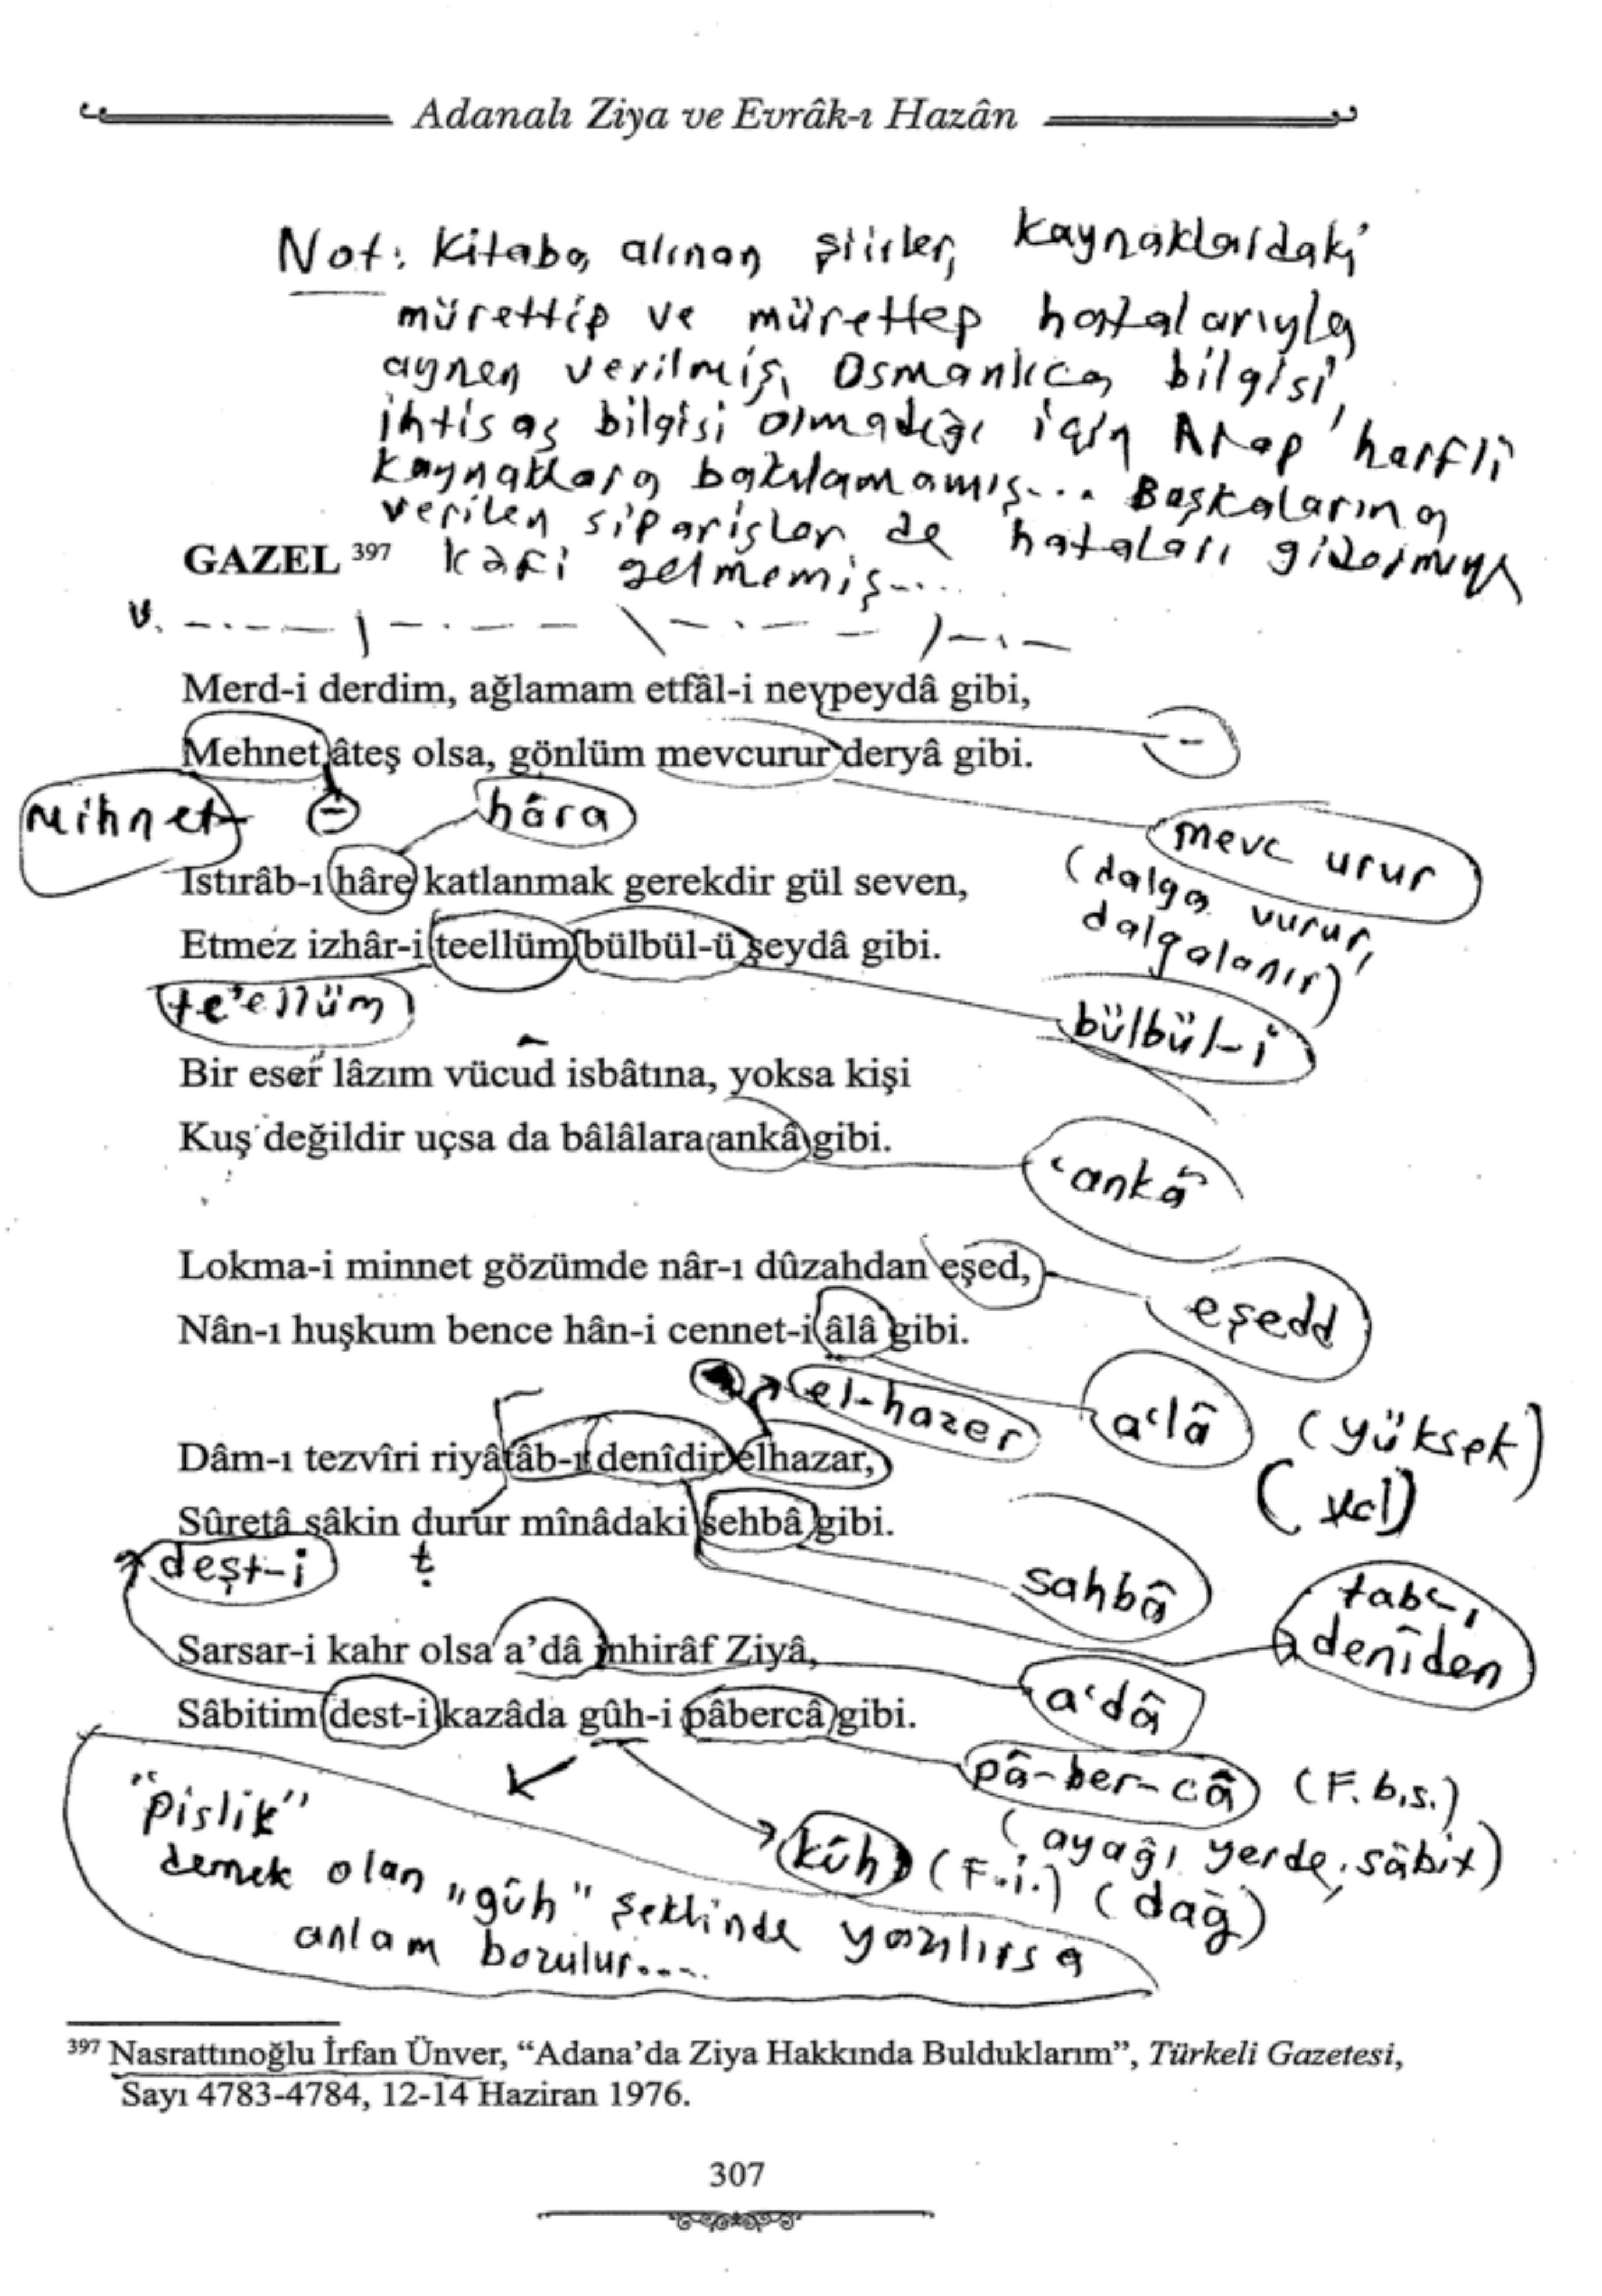 Adanalı Ziya ve Evrâk-ı Hazân
Not: Kitaba alınan şiirler, kaynaklardaki
mürettip ve mürettep hatalarıyla
aynen verilmiş, Osmanlıca bilgisi,
ihtisas bilgisi olmadığı için Arap harfli
kaynaklara bakılamamış... Başkalarına
verilen siparişler de hataları gidermeye
GAZEL 397 kâfi gelmemiş....
v. — . — — | — . — — \ — . — — ) — . —
Merd-i derdim, ağlamam etfâl-i nevpeydâ gibi,
-
Mehnet âteş olsa, gönlüm mevcurur deryâ gibi.
Mihnet (-) hâra
mevc urur
(dalga vurur,
dalgalanır)
Istırâb-ı hâre katlanmak gerekdir gül seven,
Etmez izhâr-i teellüm bülbül-ü şeydâ gibi.
te'ellüm
bülbül-i
Bir eser lâzım vücud isbâtına, yoksa kişi
Kuş değildir uçsa da bâlâlara ankâ gibi.
‘ankâ
Lokma-i minnet gözümde nâr-ı dûzahdan eşed,
eşedd
Nân-ı huşkum bence hân-i cennet-i âlâ gibi.
el-hazer
a‘lâ (yüksek)
Dâm-ı tezvîri riyâtâb-ı denîdir elhazar,
Sûretâ sâkin durur mînâdaki sehbâ gibi.
deşt-i t
sahbâ
tab‘-ı
denîden
Sarsar-i kahr olsa a’dâ inhirâf Ziyâ,
a‘dâ
Sâbitim dest-i kazâda gûh-i pâbercâ gibi.
pâ-ber-câ (F.b.s.)
(ayağı yerde, sâbit)
kûh (F.i.) (dağ)
"pislik"
demek olan "gûh" şeklinde yazılırsa
anlam bozulur....
397 Nasrattınoğlu İrfan Ünver, “Adana’da Ziya Hakkında Bulduklarım”, Türkeli Gazetesi,
Sayı 4783-4784, 12-14 Haziran 1976.
307